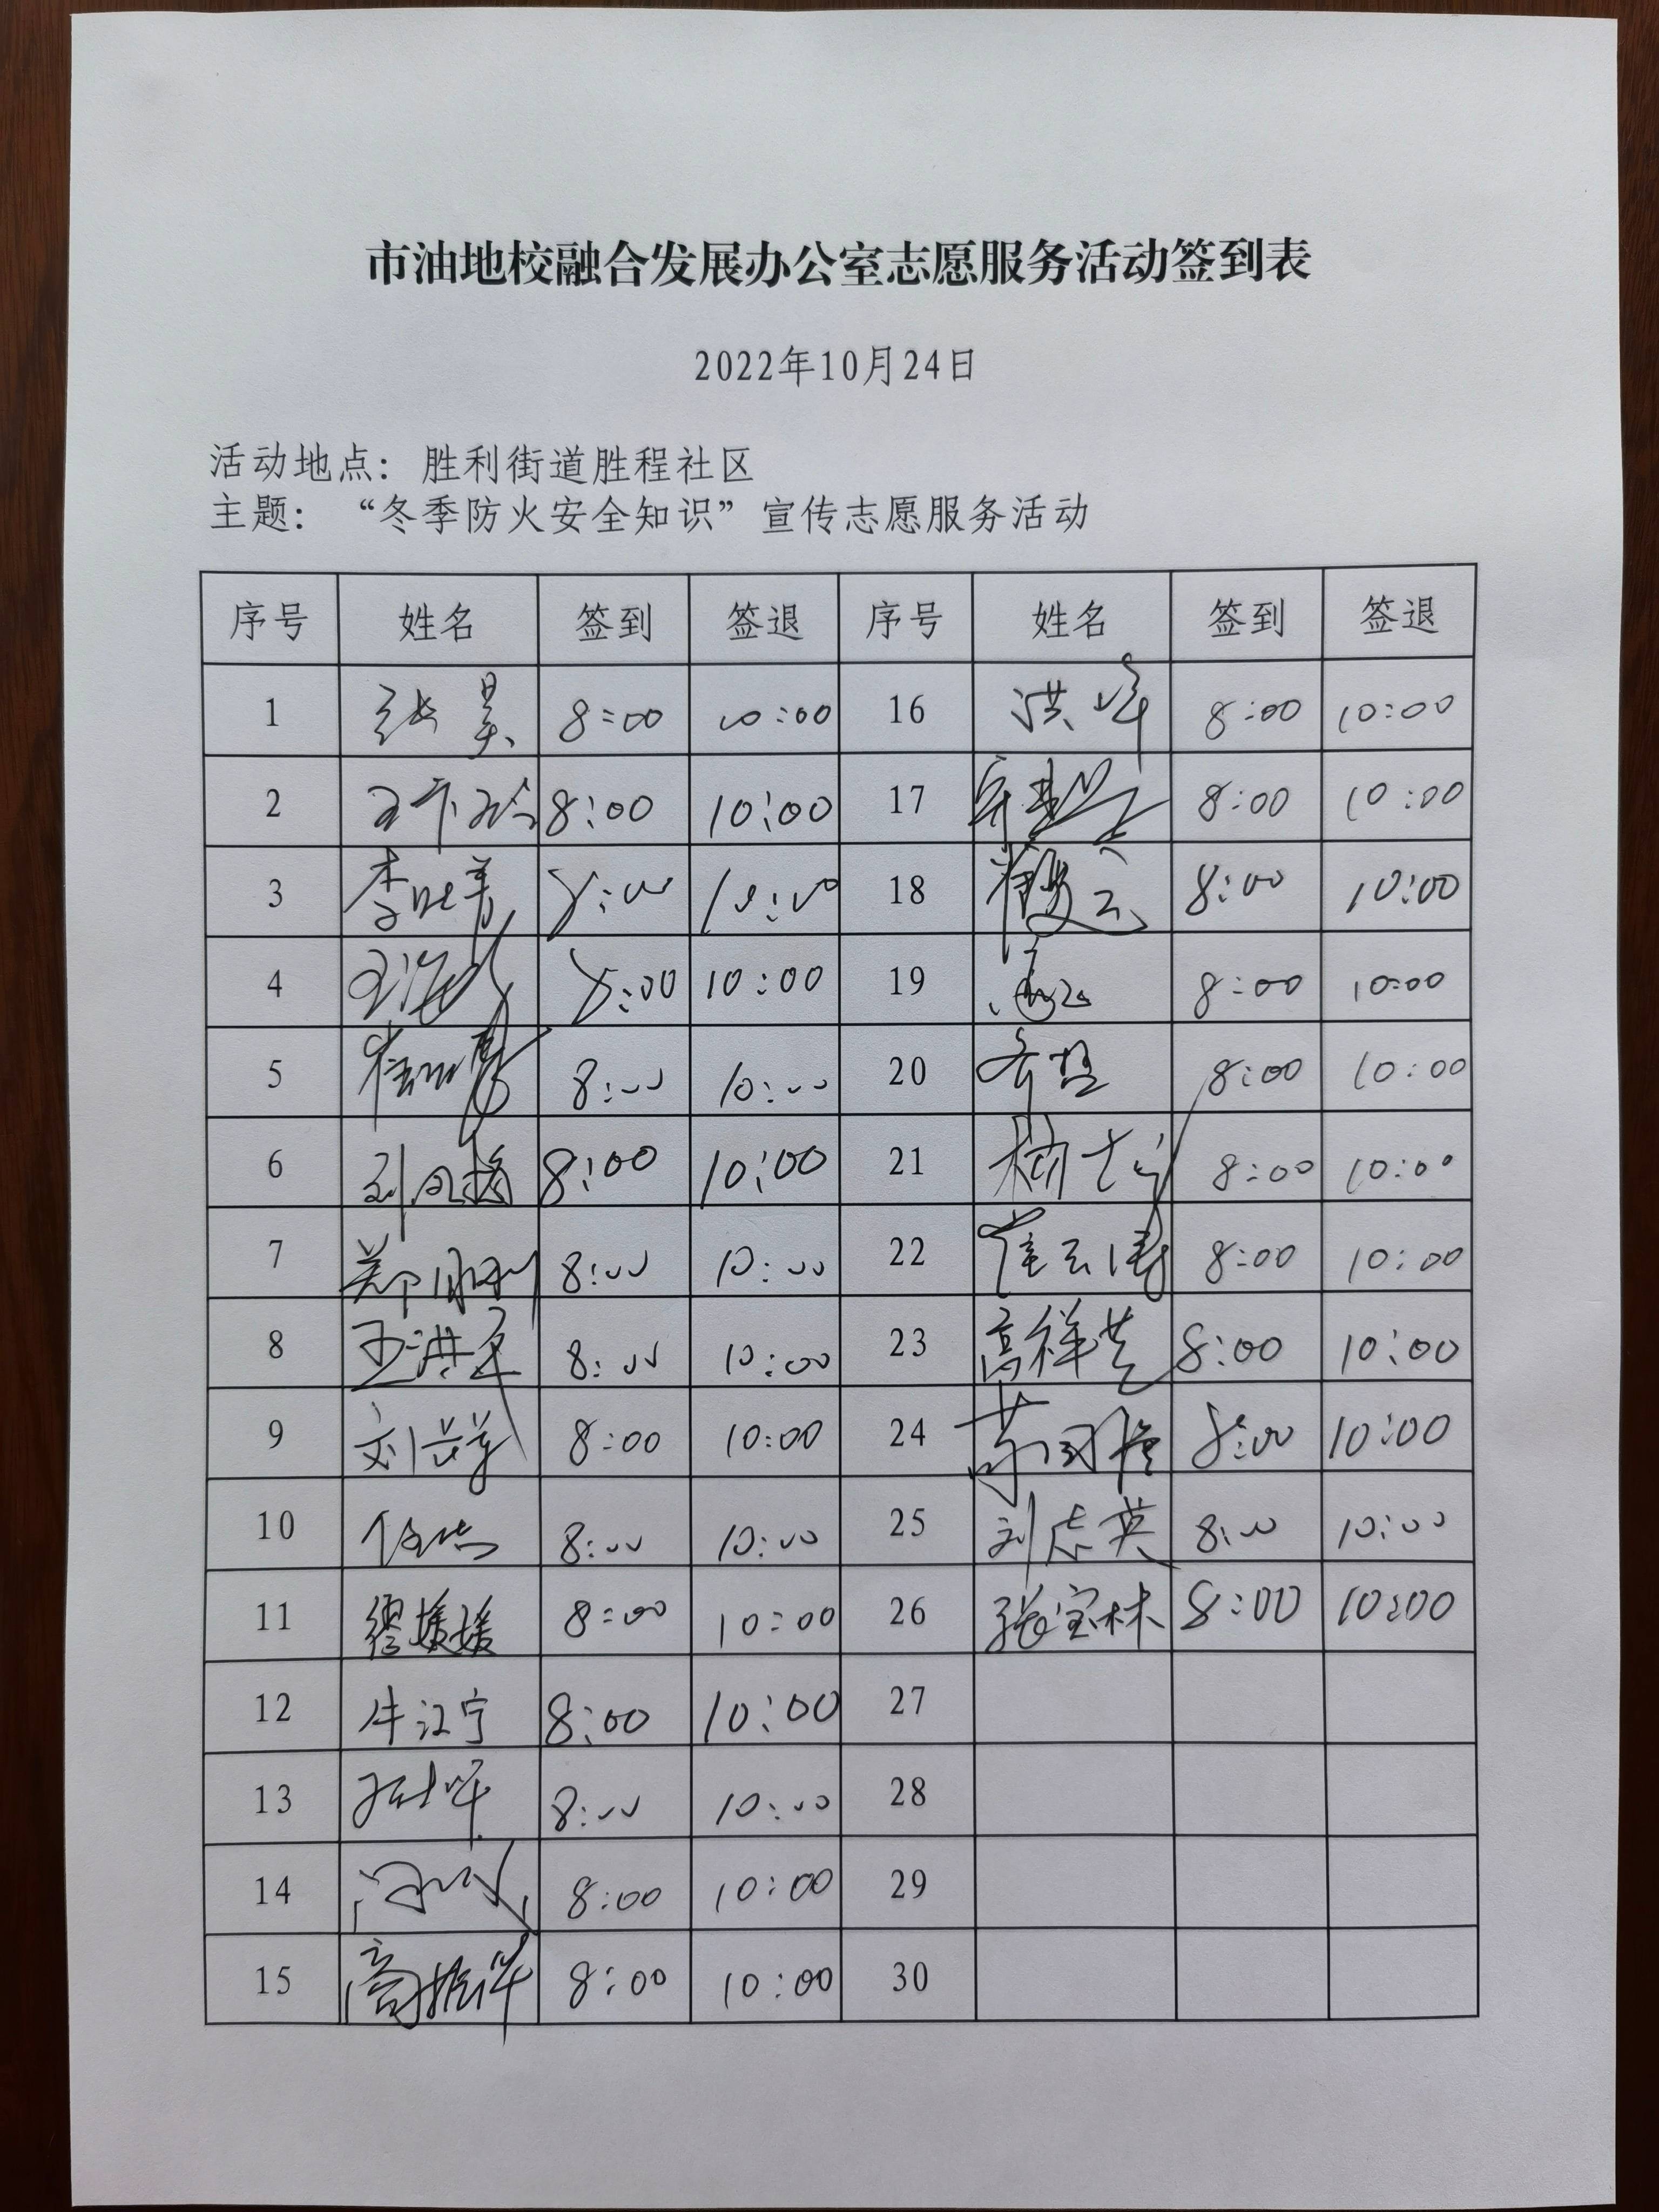 市油地校融合发展办公室志愿服务活动签到表
2022年10月24日
活动地点：胜利街道胜程社区
主题：“冬季防火安全知识”宣传志愿服务活动
序号 姓名 签到 签退 序号 姓名 签到 签退
1 张昊 8:00 10:00 16 洪峰 8:00 10:00
2 8:00 10:00 17 8:00 10:00
3 8:00 10:00 18 8:00 10:00
4 8:00 10:00 19 8:00 10:00
5 8:00 10:00 20 8:00 10:00
6 8:00 10:00 21 8:00 10:00
7 8:00 10:00 22 崔云涛 8:00 10:00
8 8:00 10:00 23 高祥芝 8:00 10:00
9 8:00 10:00 24 8:00 10:00
10 8:00 10:00 25 刘志英 8:00 10:00
11 缪媛媛 8:00 10:00 26 张宝林 8:00 10:00
12 牛江宁 8:00 10:00 27
13 8:00 10:00 28
14 8:00 10:00 29
15 8:00 10:00 30